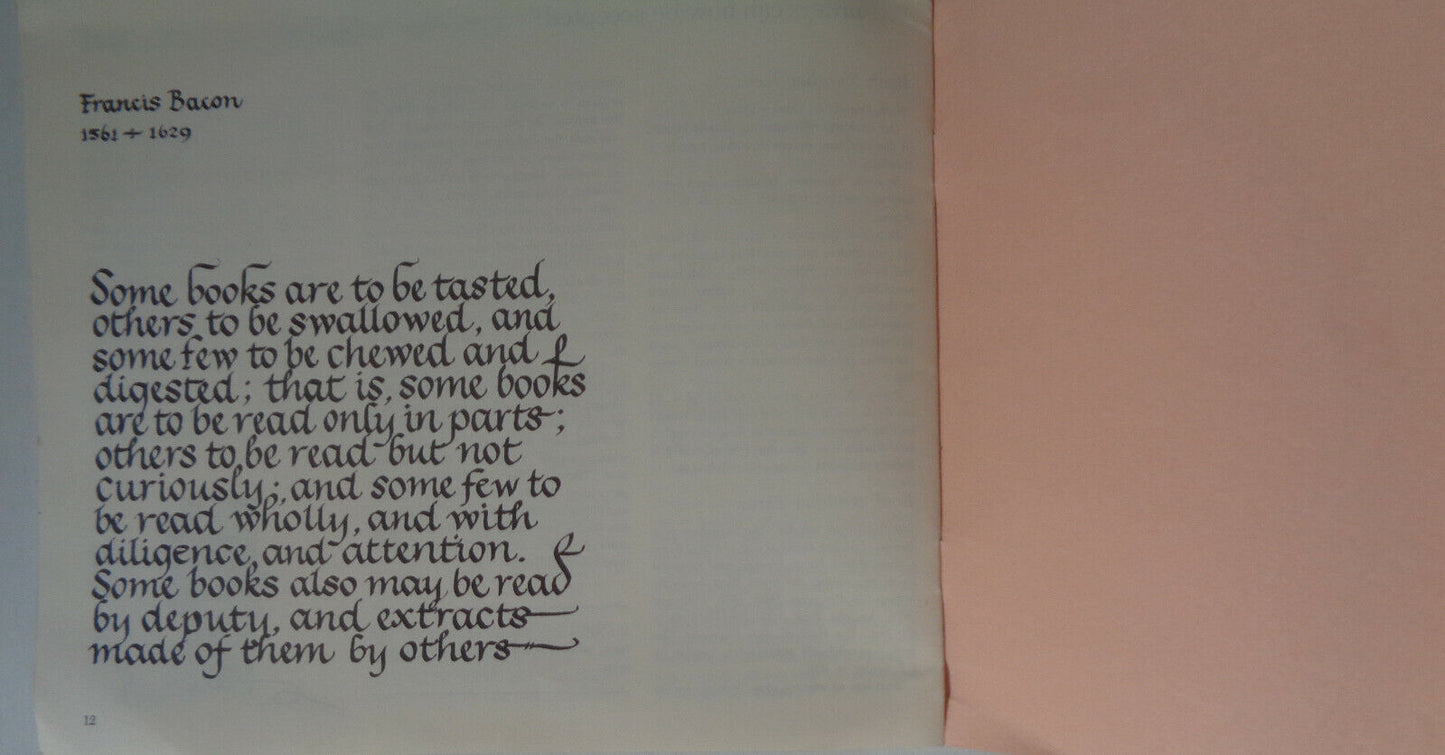 Francis Bacon
1561 ÷ 1629
Some books are to be tasted,
others to be swallowed, and
some few to be chewed and
digested; that is, some books
are to be read only in parts;
others to be read but not
curiously; and some few to
be read wholly, and with
diligence and attention.
Some books also may be read
by deputy, and extracts
made of them by others
12